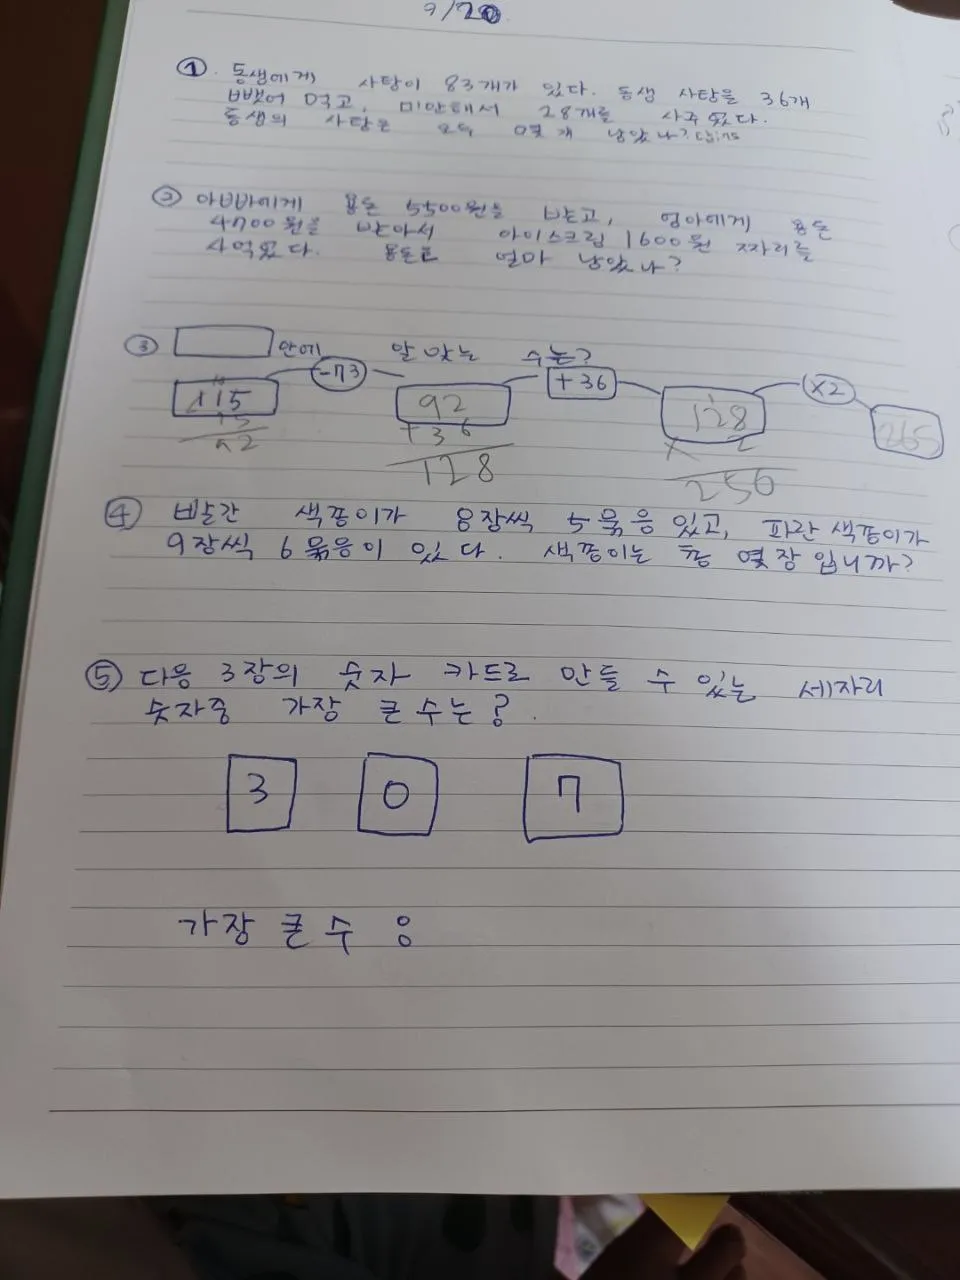 9/20
① 동생에게 사탕이 83개가 있다. 동생 사탕을 36개
뺏어 먹고, 미안해서 28개를 사주었다.
동생의 사탕은 모두 몇 개 남았나?
② 아빠에게 용돈 5500원을 받고, 엄마에게 용돈
4700원을 받아서 아이스크림 1600원 짜리를
사먹었다. 용돈은 얼마 남았나?
③ 안에 알맞는 수는?
-73 +36 ×2
115 92 128 265
92 +36 × 2
128 256
④ 빨간 색종이가 8장씩 5묶음 있고, 파란 색종이가
9장씩 6묶음이 있다. 색종이는 총 몇 장 입니까?
⑤ 다음 3장의 숫자 카드로 만들 수 있는 세자리
숫자중 가장 큰 수는?
3 0 7
가장 큰 수 :